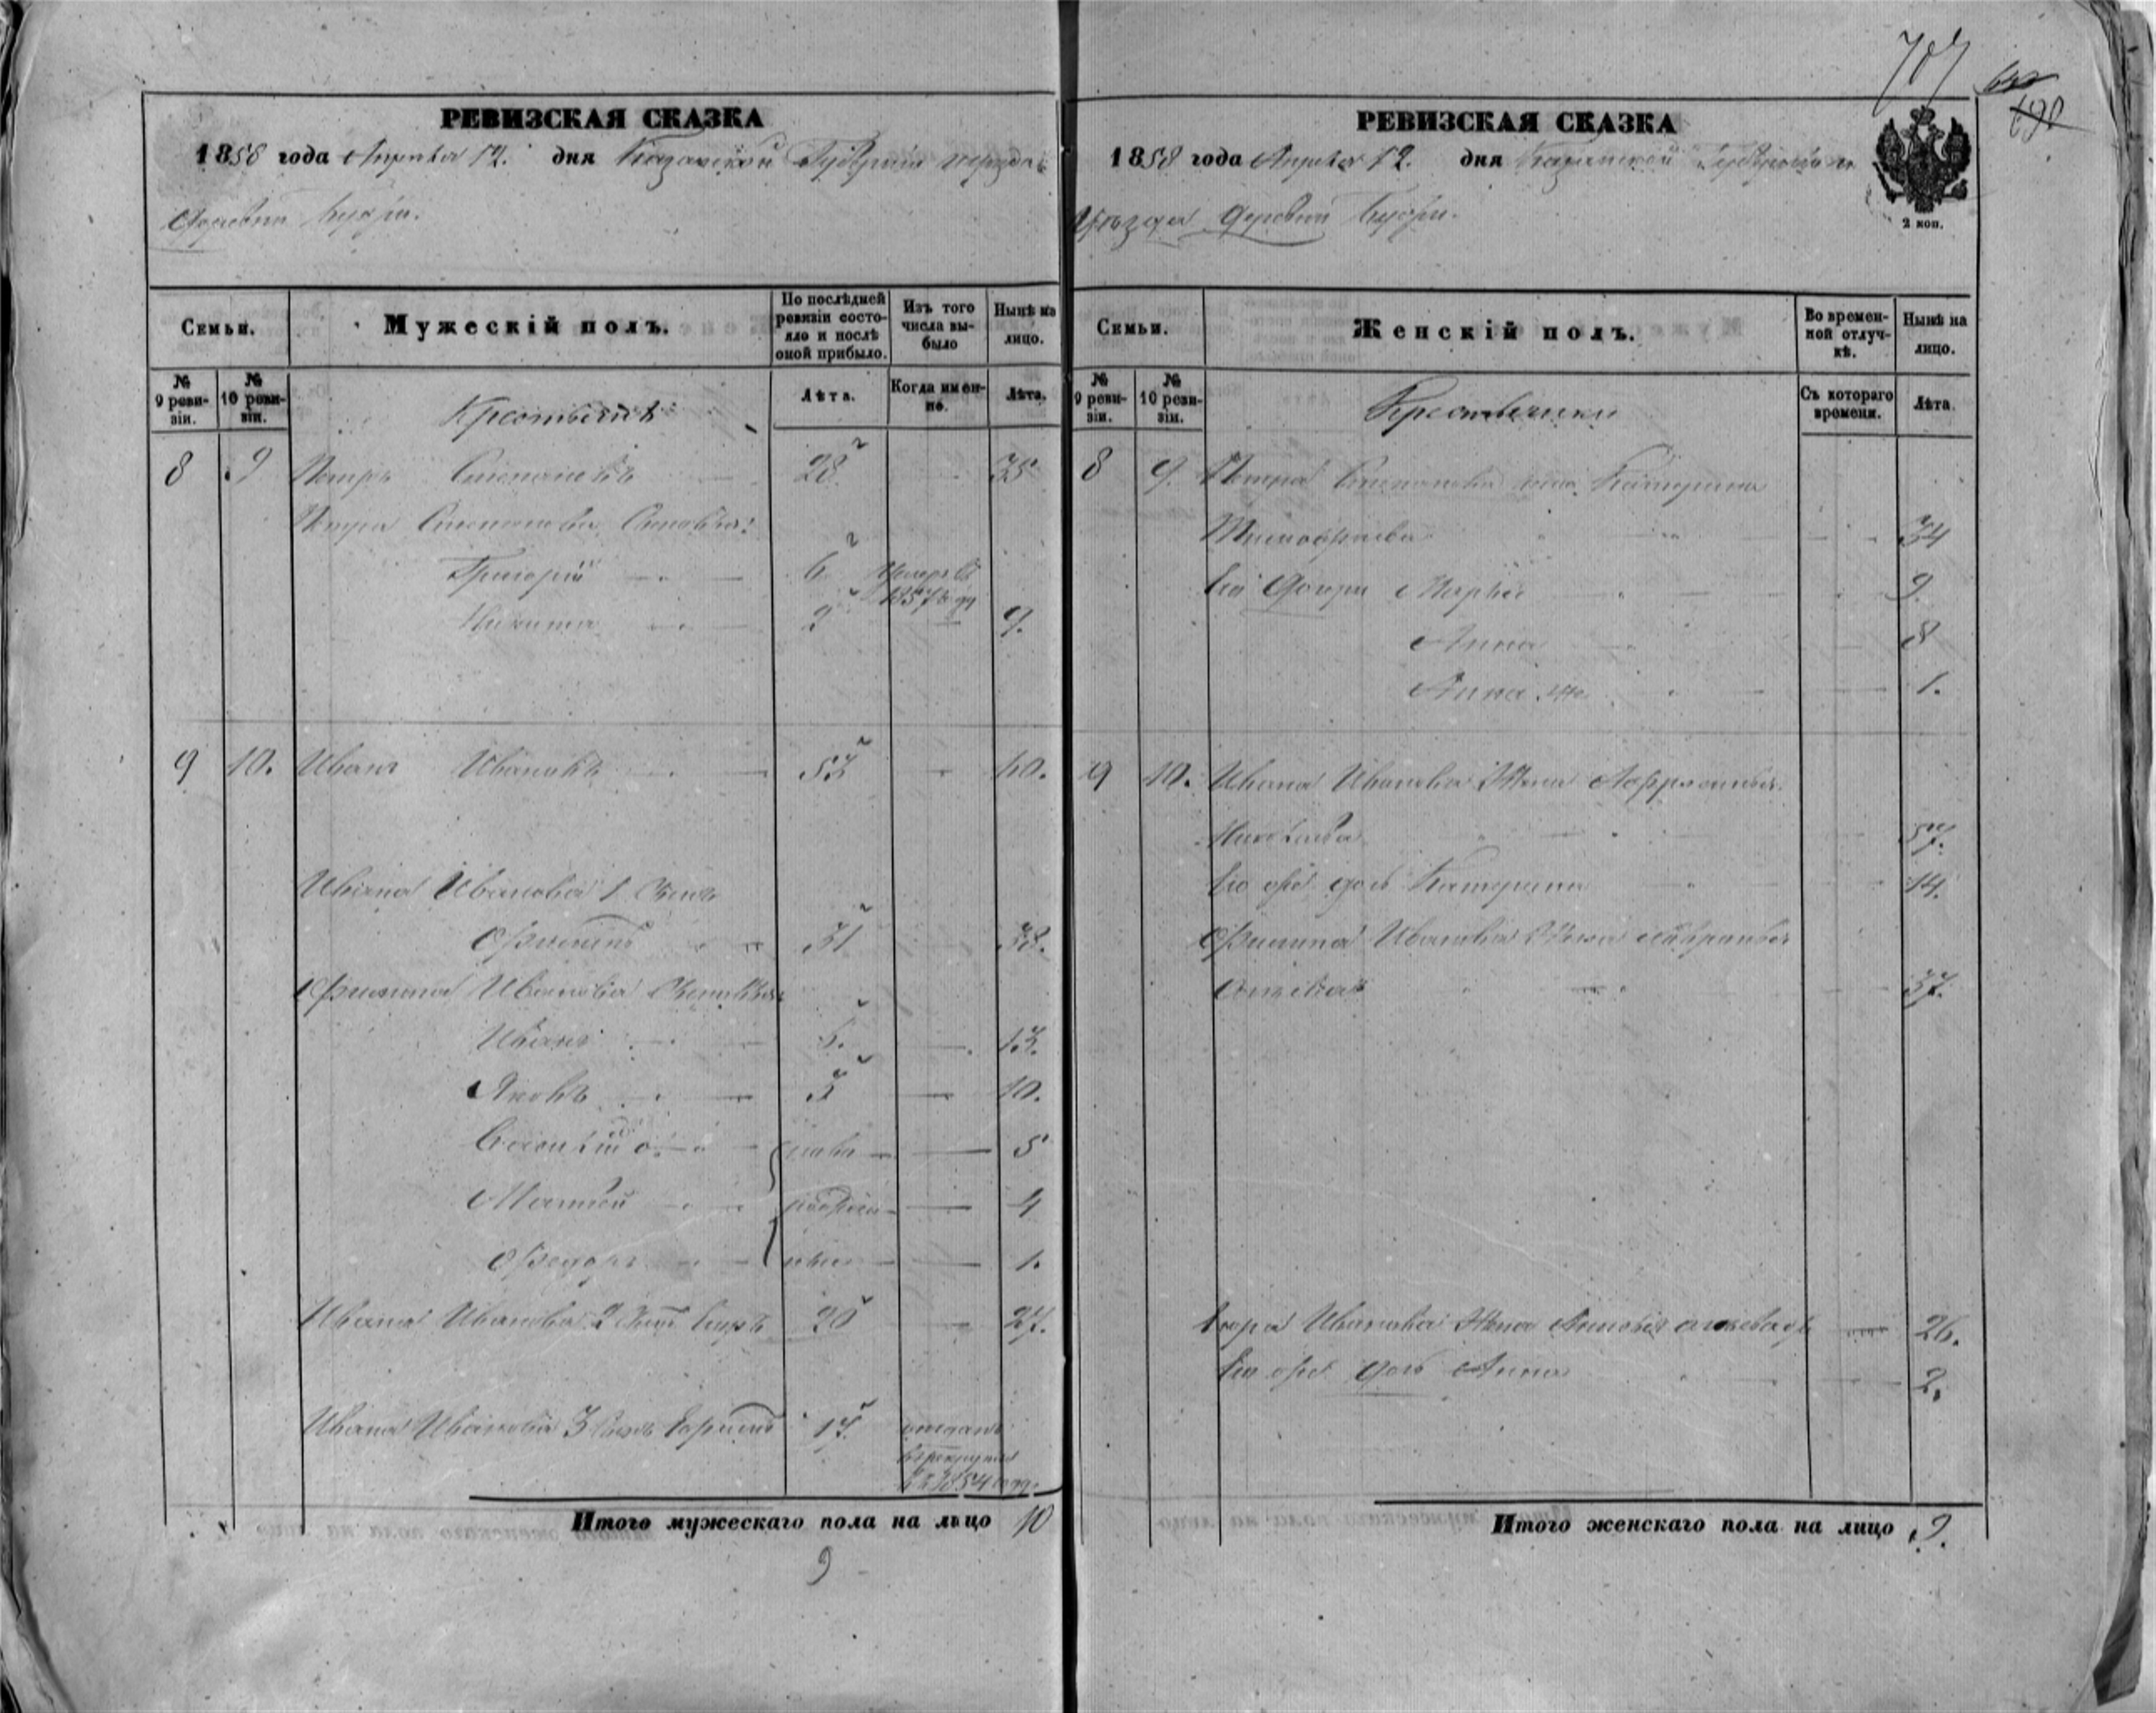 707
РЕВИЗСКАЯ СКАЗКА
1858 года Апреля 12. дня Казанской Губернии
Деревни
Семьи.
Мужескій полъ.
По послѣдней ревизіи состояло и послѣ оной прибыло.
Изъ того числа выбыло
Нынѣ на лицо.
№ 9 ревизіи.
№ 10 ревизіи.
Крестьяне
Лѣта.
Когда именно.
Лѣта.
8 9 Петръ Степановъ 28 35
Петра Степанова Сыновья:
Григорій 6 умеръ въ 1857 году
Никита 2 9.
9 10. Иванъ Ивановъ 53 60.
Ивана Иванова 1 Сынъ
Филипъ 31 38.
Филипа Иванова Сыновья
Иванъ 6. 13.
Яковъ 3 10.
Василій 5
Матвей 4
Федоръ 1.
Ивана Иванова 2 Сынъ Егоръ 20 27.
Ивана Иванова 3 Сынъ Ефимъ 17. отданъ
въ рекруты
въ 1854 году
Итого мужескаго пола на лицо 10
9
РЕВИЗСКАЯ СКАЗКА
1858 года Апреля 12. дня Казанской Губернии
Уѣзда Деревни
2 коп.
Семьи.
Женскій полъ.
Во временной отлучкѣ.
Нынѣ на лицо.
№ 9 ревизіи.
№ 10 ревизіи.
Крестьянки
Съ котораго времени.
Лѣта.
8 9. Петра Степанова жена Катерина
Тимофеева 34
Его Дочери Марья 9.
Анна 8
Анна 1.
9 10. Ивана Иванова Жена
57.
Его дочь Катерина 14.
Филипа Иванова Жена
37.
Егора Иванова Жена 26.
Его дочь Анна 2.
Итого женскаго пола на лицо 9.